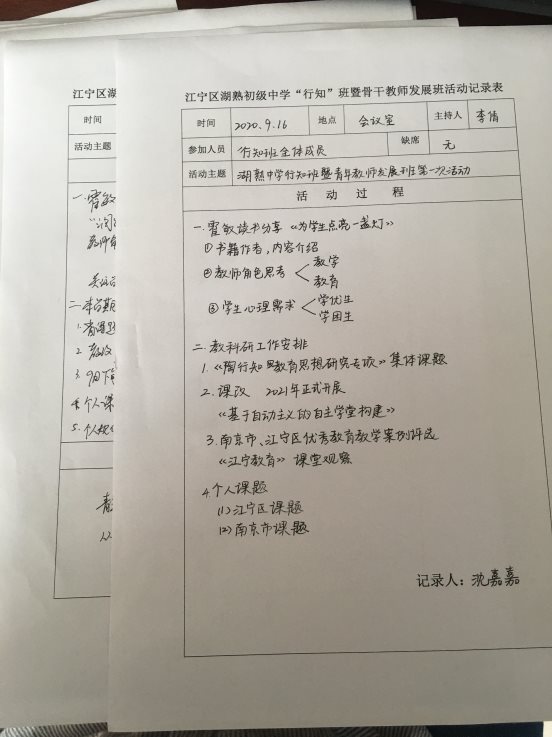 江宁区湖熟初级中学“行知”班暨骨干教师发展班活动记录表
时间 2020.9.16 地点 会议室 主持人 李倩
参加人员 行知班全体成员 缺席 无
活动主题 湖熟中学行知班暨青年教师发展班第一次活动
活动过程
一.霍敏读书分享《为学生点亮一盏灯》
①书籍作者,内容介绍
②教师角色思考 教学
教育
③学生心理需求 学优生
学困生
二.教科研工作安排
1.《陶行知教育思想研究专项》集体课题
2.课改 2021年正式开展
《基于自动主义的自主学堂构建》
3.南京市、江宁区优秀教育教学案例评选
《江宁教育》课堂观察
4.个人课题
(1)江宁区课题
(2)南京市课题
记录人:沈嘉嘉
江宁区湖
时间
活动主题
一.霍敏
教师角
二.本学期
1.
2.
3.9月下
4.个人课
5.个人